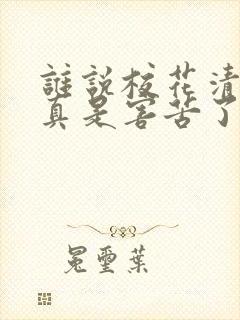 誰說校花清
真是害苦了
冕璽葉